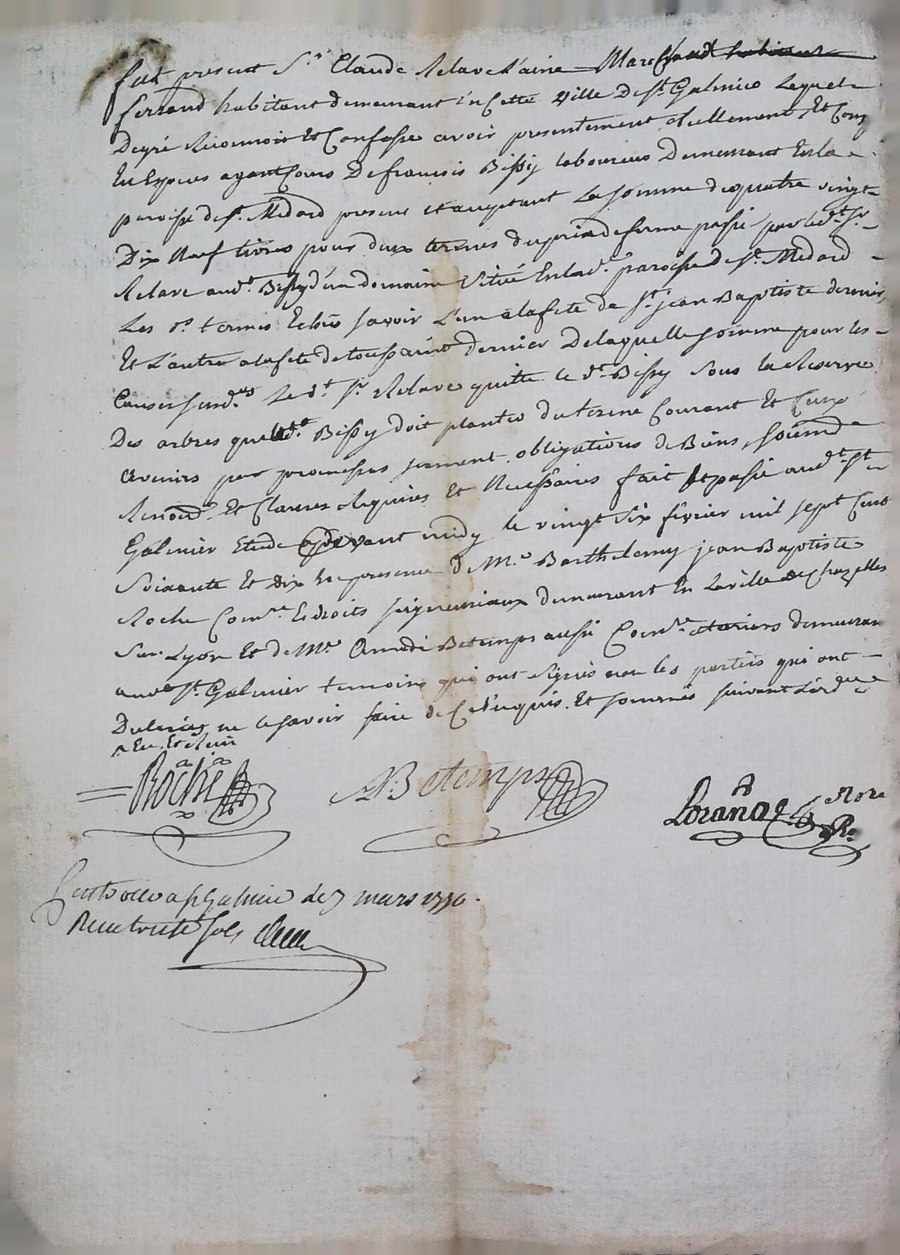 fut present Sr. Claude Relave l'ainé Marchand habitant
ferrand habitant demeurant En Cette ville De St. Galmier Lequel
De gré Reconnoit Et Confesse avoir presentement Reellement Et
En Especes ayant Cours De françois Bissy laboureur Demeurant En la
paroisse de St. Medard present et aceptant La somme de quatre vingt
Dix Neuf livres pour deux termes du prix de ferme passé par le dt. Sr.
Relave aud. Bissy d'un domaine Situé En lad. paroisse De St. Medard
Les ds. termes Echûs Savoir L'un a la fete de St. jean Baptiste dernier
Et L'autre a la fete de toussaint dernier De laquelle somme pour les
Causes susd. Le dt. Sr. Relave quitte le dt. Bissy Sous la Reserve
Des arbres que led. Bissy doit planter du terme Courant Et Ceux
avenirs par promesses serment obligations de Biens, soumo.
Renond. Et Clauses Requises Et Necessaires fait Et passé aud. St.
Galmier Etude avant midy le vingt six fevrier mil sept Cent
Soixante Et dix En presence De Me. Barthelemy jean Baptiste
Roche Comre. Es droits seigneuriaux demeurant En La ville de Chazelles
Sur Lyon Et de Me. Amedé Betemps aussi Comre. a terriers demeurant
aud. St. Galmier temoins qui ont signés non les parties qui ont
Declarées ne le savoir faire de Ce Enquis. Et sommés suivant L'ord.
Roche
ABetemps
Loranda
Nore
Ro.
Controllé a St Galmier le 7 mars 1770.
Recu treize sols